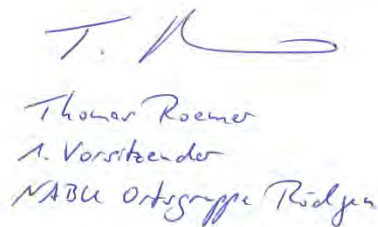 T. R
Thomas Roemer
1. Vorsitzender
NABU Ortsgruppe Rödgen